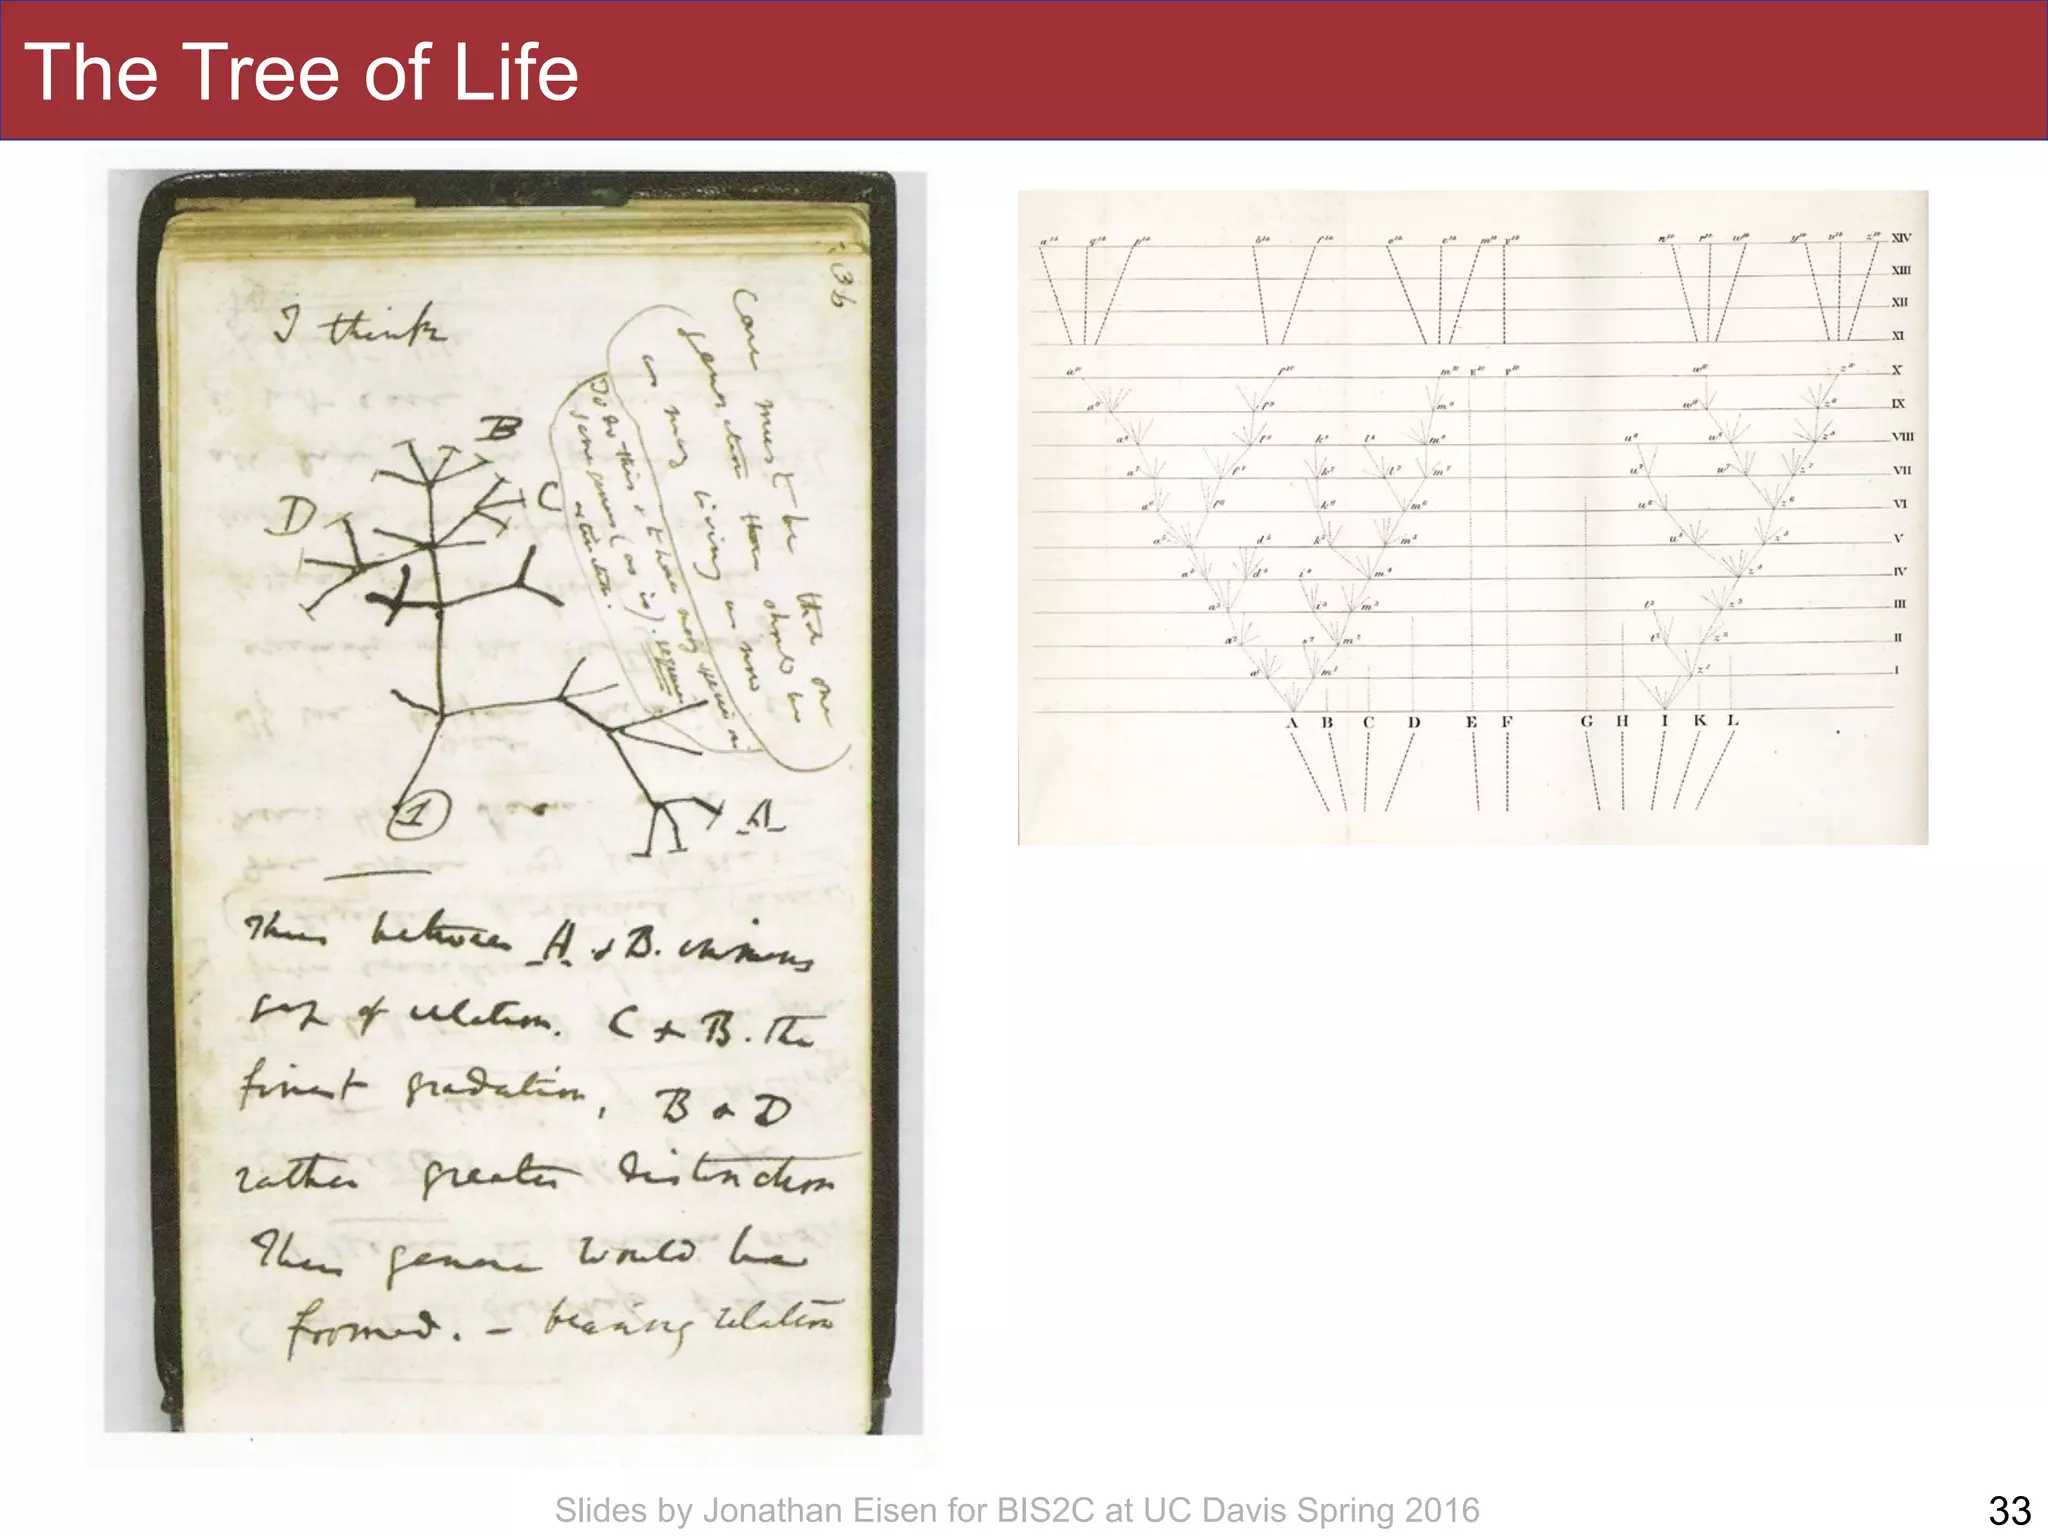 The Tree of Life
36
I think
Case must be that one
generation then should be
as many living as now
To do this & to have many species in
same genus (as is). requires
extinction.
B
C
D
A
1
Thus between A & B. immense
gap of relation. C & B. The
finest gradation, B & D
rather greater distinction
Thus genera would be
formed. — bearing relation
a14 q14 p14 b14 f14 o14 e14 m14 F14 n14 r14 w14 y14 v14 z14 XIV
XIII
XII
XI
a10 f10 m10 E10 F10 w10 z10 X
a9 f9 m9 w9 z9 IX
a8 f8 k8 l8 m8 u8 w8 z8 VIII
a7 f7 k7 l7 m7 u7 w7 z7 VII
a6 f6 k6 m6 u6 z6 VI
a5 d5 k5 m5 u5 z5 V
a4 d4 i4 m4 z4 IV
a3 i3 m3 t3 z3 III
a2 s2 m2 t2 z2 II
a1 m1 z1 I
A B C D E F G H I K L
Slides by Jonathan Eisen for BIS2C at UC Davis Spring 2016
33